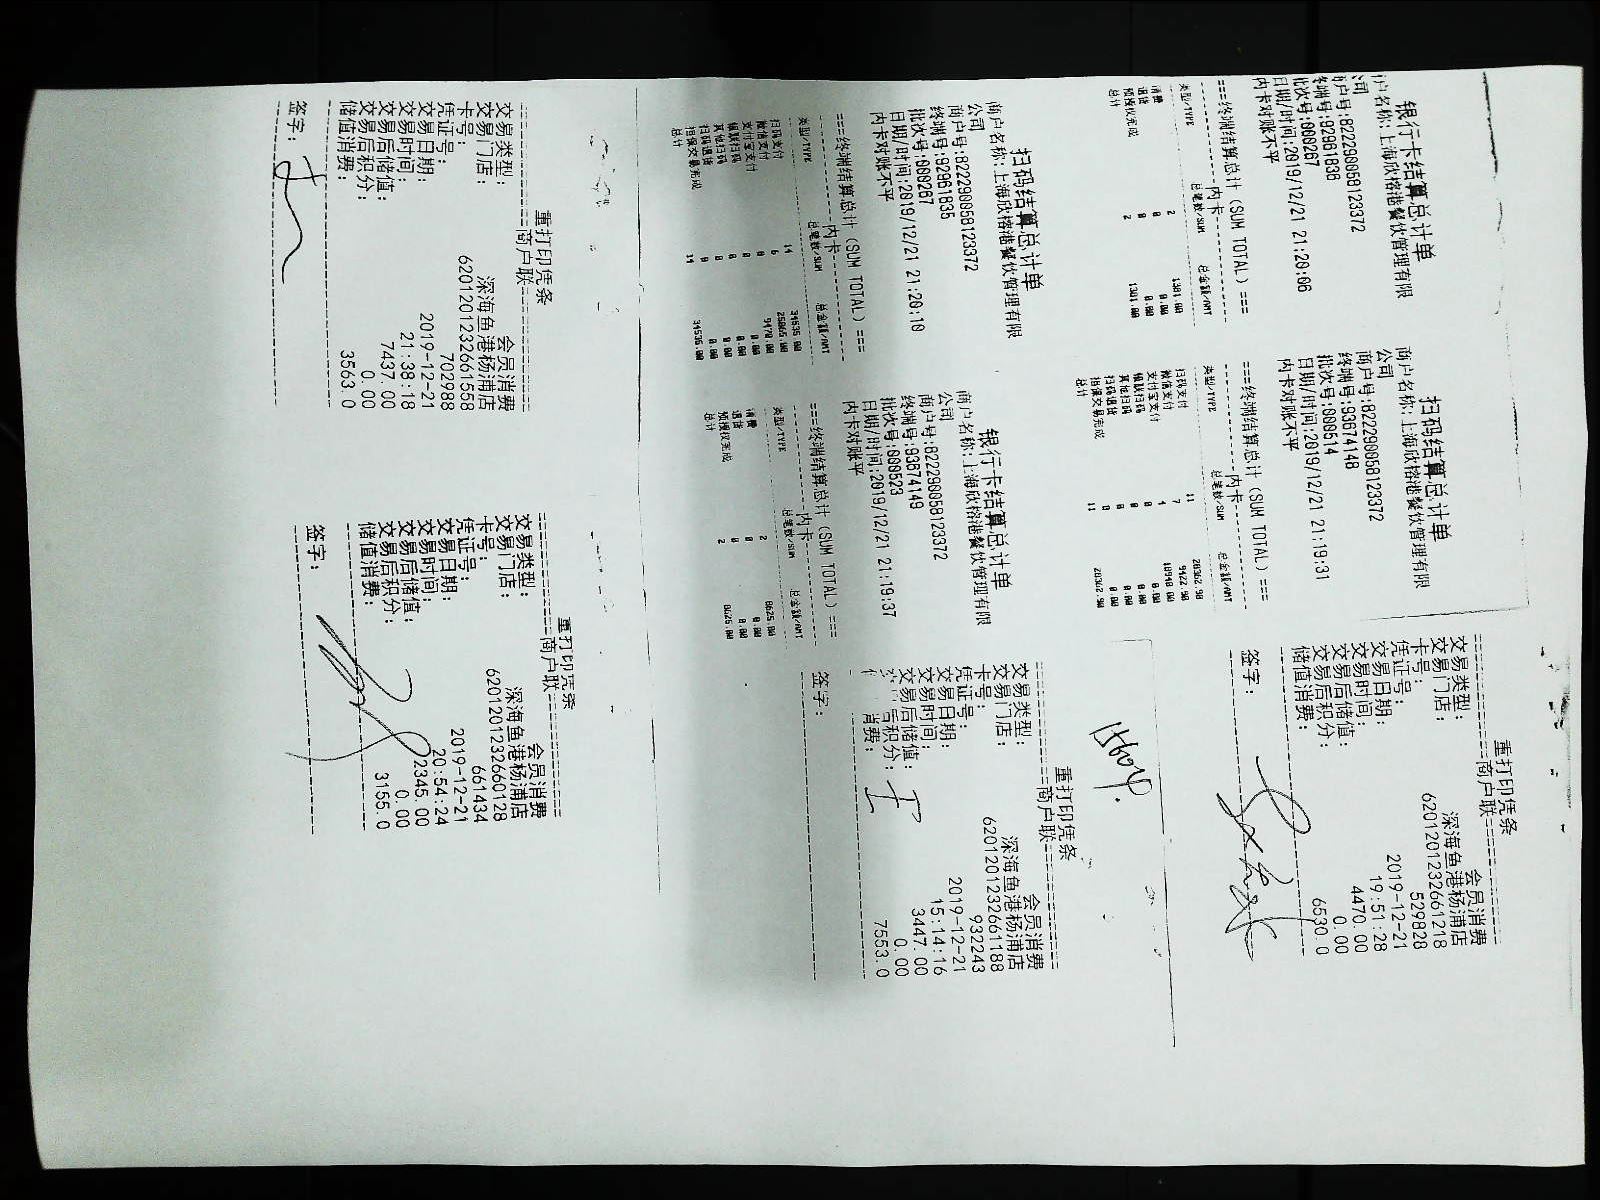 银行卡结算总计单
户名称:上海欣榕港餐饮管理有限
司
户号:822290058123372
终端号:92961836
批次号:000267
日期/时间:2019/12/21 21:20:06
内卡对账不平
===终端结算总计 (SUM TOTAL) ===
内卡
类型/TYPE 总笔数/SUM 总金额/AMT
消费 2 1301.00
退货 0 0.00
预授权完成 0 0.00
总计 2 1301.00
扫码结算总计单
商户名称:上海欣榕港餐饮管理有限
公司
商户号:822290058123372
终端号:93674148
批次号:000514
日期/时间:2019/12/21 21:19:31
内卡对账不平
===终端结算总计 (SUM TOTAL) ===
内卡
类型/TYPE 总笔数/SUM 总金额/AMT
扫码支付 11 20362.90
微信支付 7 9422.90
支付宝支付 4 10940.00
银联扫码 0 0.00
其他扫码 0 0.00
扫码退货 0 0.00
担保交易完成 0 0.00
总计 11 20362.90
重打印凭条
商户联
交易类型: 会员消费
交易门店: 深海鱼港杨浦店
卡号: 6201201232661218
凭证号: 529828
交易日期: 2019-12-21
交易时间: 19:51:28
交易后储值: 4470.00
交易后积分: 0.00
储值消费: 6530.0
签字:
扫码结算总计单
商户名称:上海欣榕港餐饮管理有限
公司
商户号:822290058123372
终端号:92961835
批次号:000267
日期/时间:2019/12/21 21:20:10
内卡对账不平
===终端结算总计 (SUM TOTAL) ===
内卡
类型/TYPE 总笔数/SUM 总金额/AMT
扫码支付 14 34535.00
微信支付
支付宝支付 9470.00
银联扫码 0 0.00
其他扫码 0 0.00
扫码退货 0 0.00
担保交易完成 0 0.00
总计 14 34535.00
银行卡结算总计单
商户名称:上海欣榕港餐饮管理有限
公司
商户号:822290058123372
终端号:93674149
批次号:000523
日期/时间:2019/12/21 21:19:37
内卡对账不平
===终端结算总计 (SUM TOTAL) ===
内卡
类型/TYPE 总笔数/SUM 总金额/AMT
消费 2 8625.00
退货 0 0.00
预授权完成 0 0.00
总计 2 8625.00
重打印凭条
商户联
交易类型: 会员消费
交易门店: 深海鱼港杨浦店
卡号: 6201201232661188
凭证号: 932243
交易日期: 2019-12-21
交易时间: 15:14:16
交易后储值: 3447.00
后积分: 0.00
消费: 7553.0
签字:
重打印凭条
商户联
交易类型: 会员消费
交易门店: 深海鱼港杨浦店
卡号: 6201201232661558
凭证号: 702988
交易日期: 2019-12-21
交易时间: 21:38:18
交易后储值: 7437.00
交易后积分: 0.00
储值消费: 3563.0
签字:
重打印凭条
商户联
交易类型: 会员消费
交易门店: 深海鱼港杨浦店
卡号: 6201201232660128
凭证号: 661434
交易日期: 2019-12-21
交易时间: 20:54:24
交易后储值: 2345.00
交易后积分: 0.00
储值消费: 3155.0
签字: